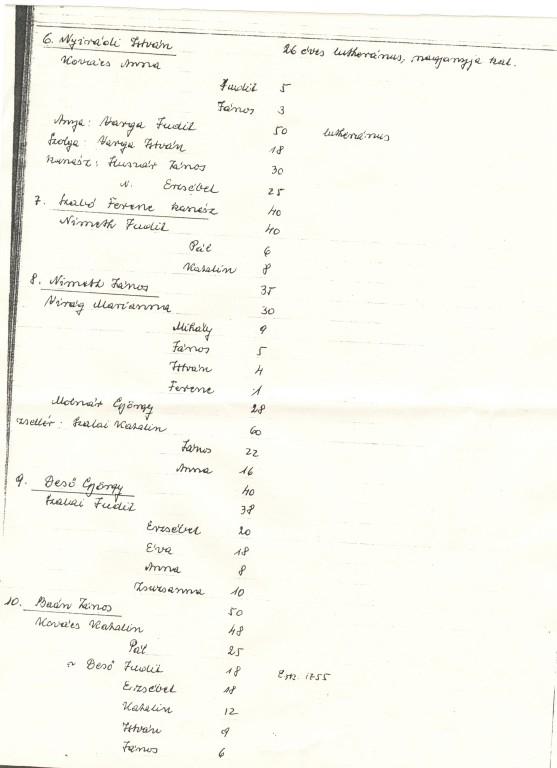 6. Nyirádi István 26 éves lutheránus, nagyanyja kat.
Kovács Anna
Judit 5
János 3
Anyja: Varga Judit 50 lutheránus
Szolga: Varga István 18
kanász: Huszár János 30
n. Erzsébet 25
7. Szabó Ferenc kanász 40
Németh Judit 40
Pál 6
Katalin 8
8. Németh János 35
Virág Marianna 30
Mihály 9
János 5
István 4
Ferenc 1
Molnár György 28
zsellér: Szalai Katalin 60
János 22
Anna 16
9. Deső György 40
Szabai Judit 38
Erzsébet 20
Éva 18
Anna 8
Zsuzsanna 10
10. Baán János 50
Kovács Katalin 48
Pál 25
n Deső Judit 18 Esk. 1755
Erzsébet 18
Katalin 12
István 9
János 6